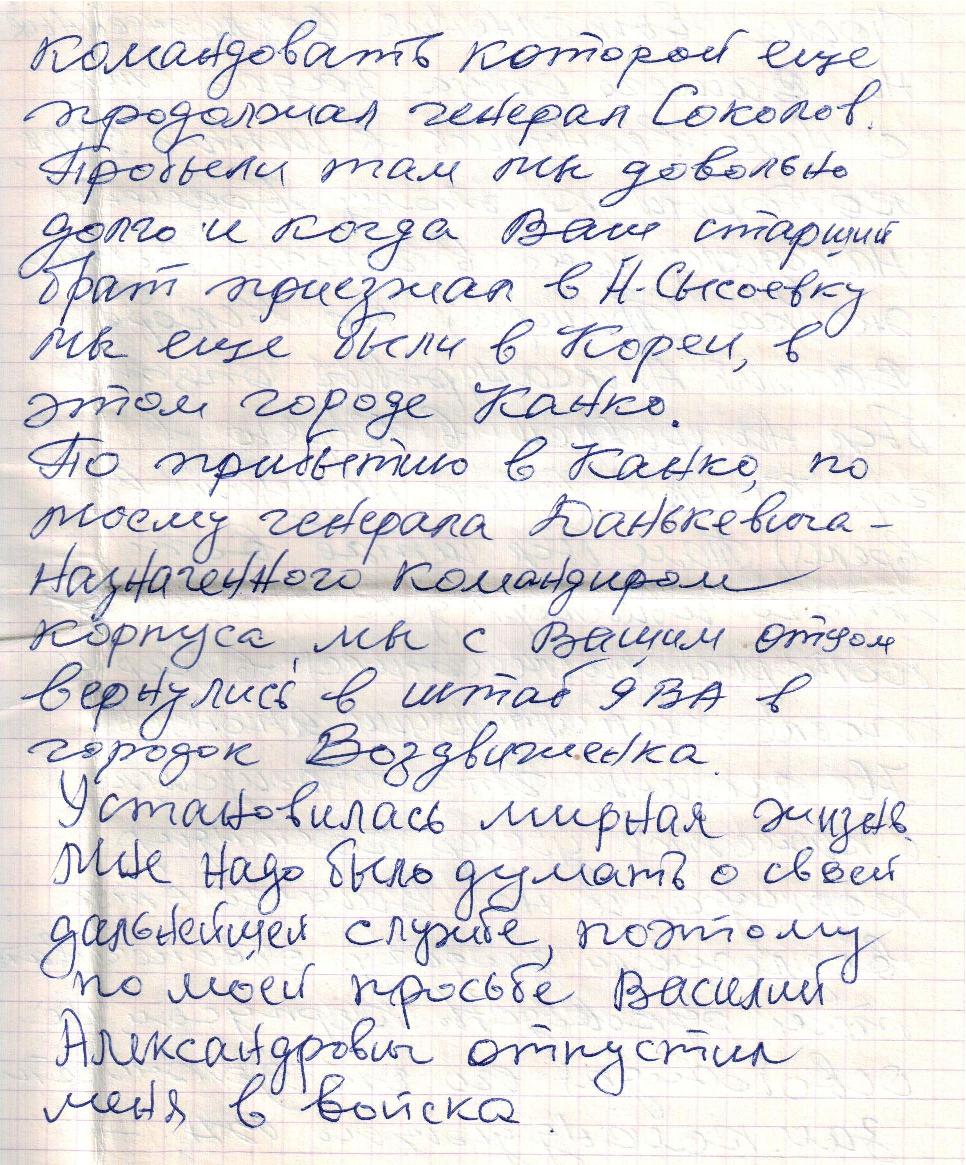 командовать которой еще
продолжал генерал Соколов.
Пробыли там мы довольно
долго и когда Ваш старший
брат приезжал в Н-Сысоевку
мы еще были в Кореи, в
этом городе Канко.
По прибытию в Канко, по
моему генерала Данькевича -
назначенного командиром
корпуса, мы с Вашим отцом
вернулись в штаб 9ВА в
городок Воздвиженка.
Установилась мирная жизнь.
Мне надо было думать о своей
дальнейшей службе, поэтому
по моей просьбе Василий
Александрович отпустил
меня в войска.